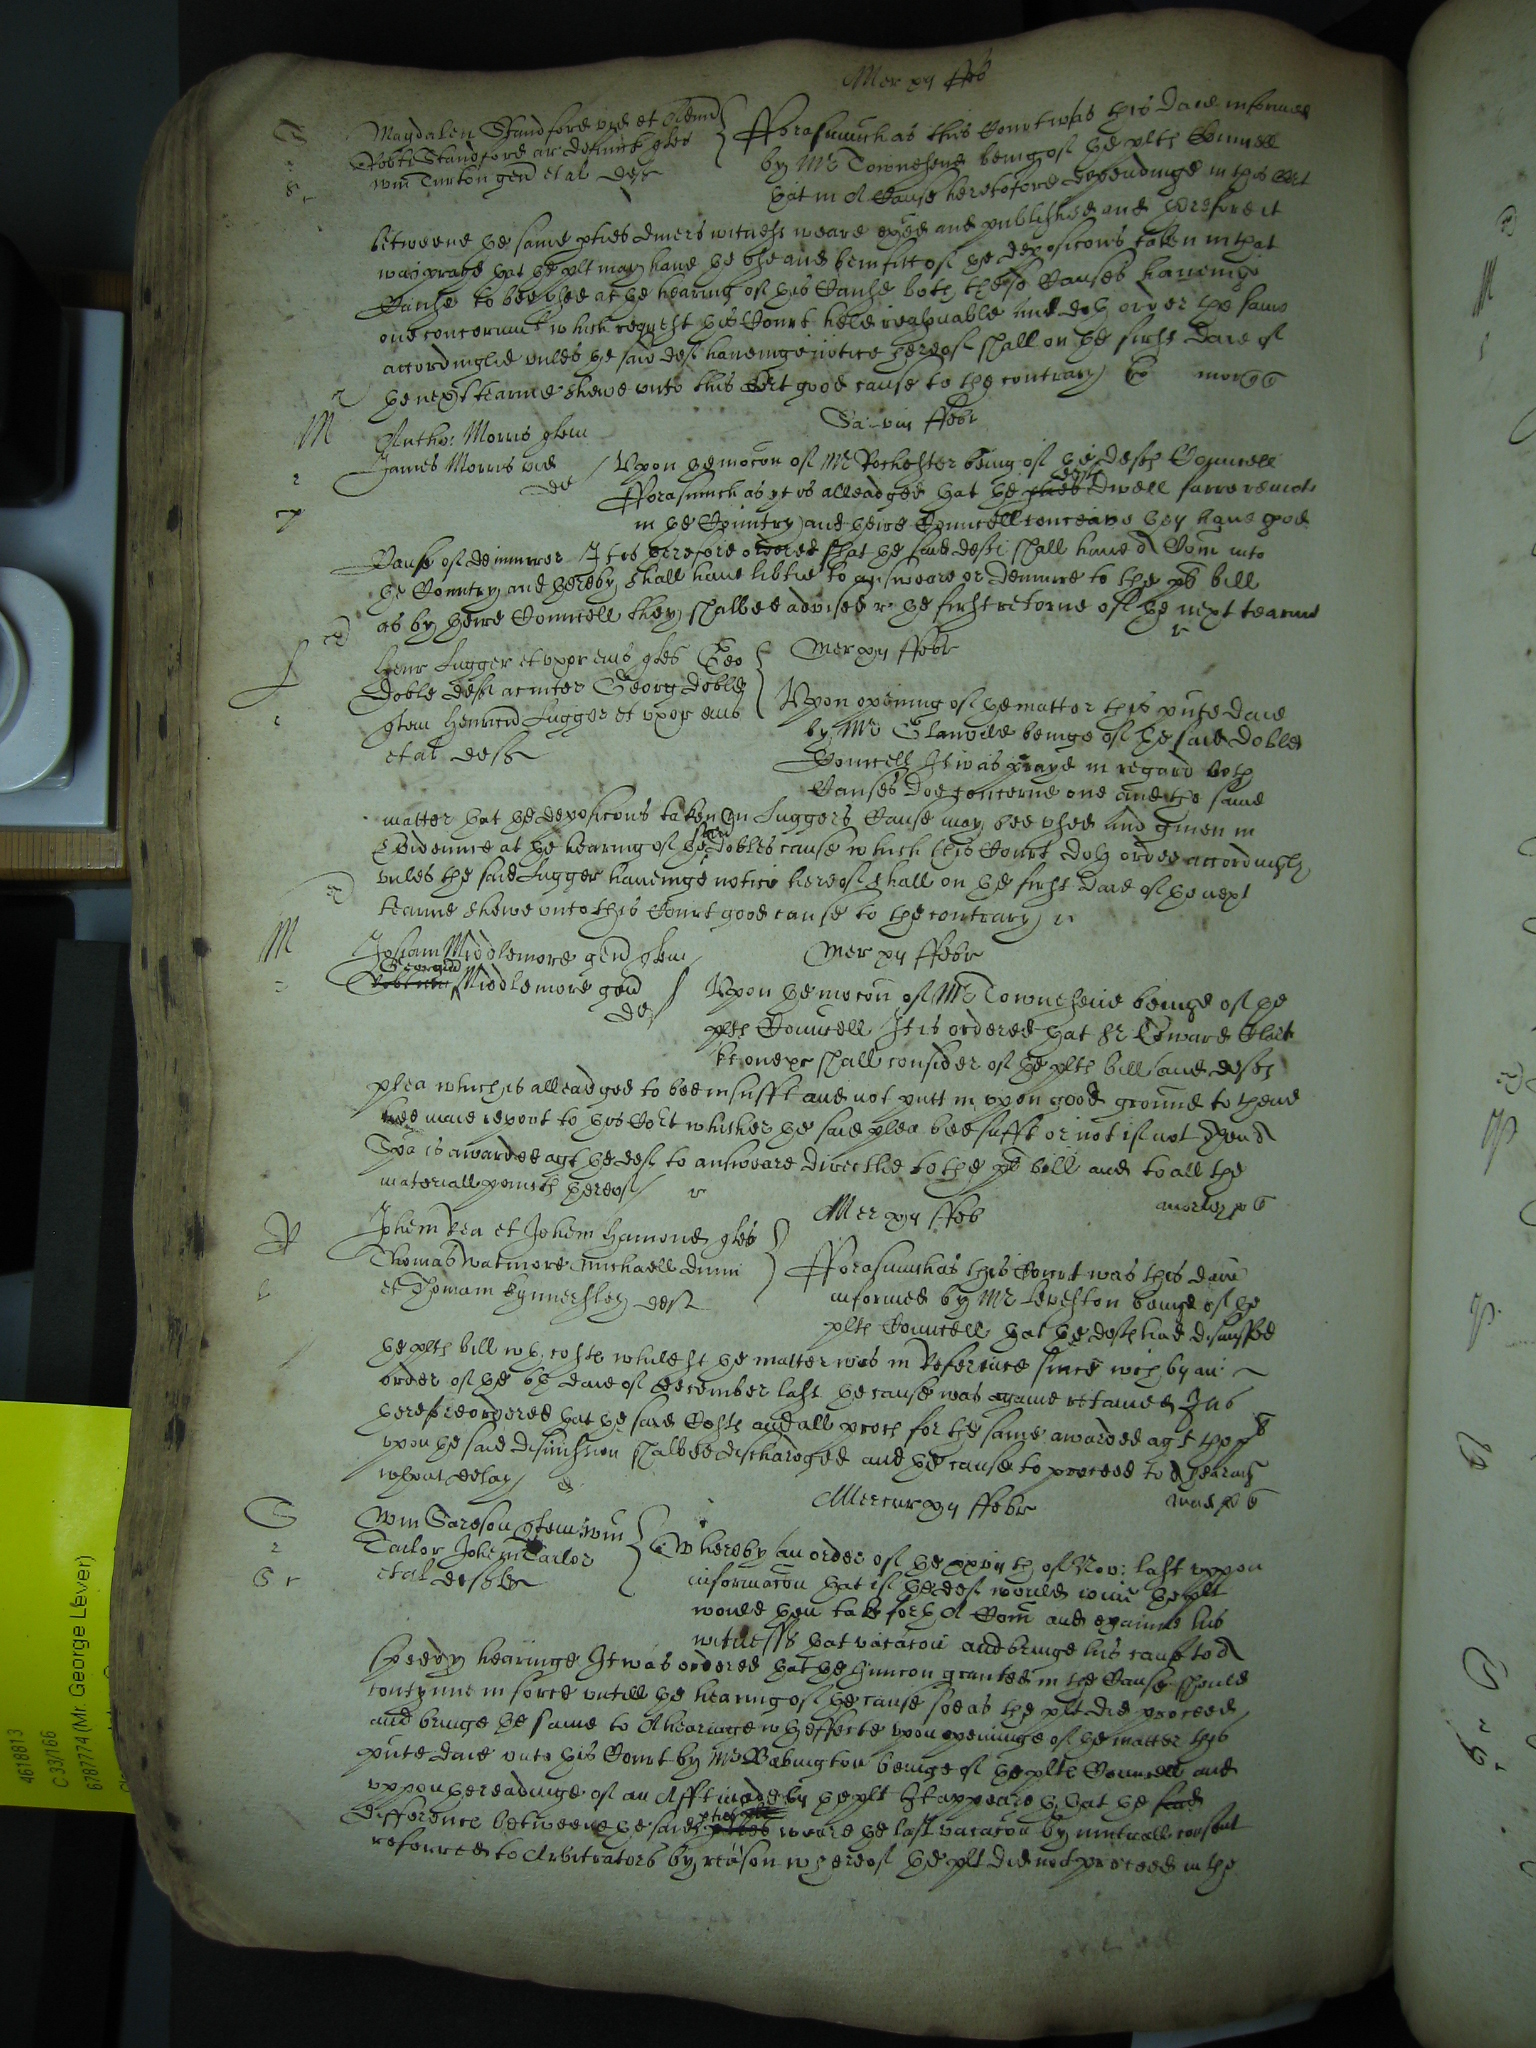 Mer xij ffeb
Magdalen Standford vid et
Robti Standford ar defunct ples
Wm Turton gen et al defts
fforasmuch as this Court was this daie informed
by Mr Towneshend being of the plts Councell
that in a Cause heretofore dependinge in this Crt
betweene the same pties divers witnesses weare exed and published and therefore it
was praied that the plt may have the use and benifitt of the deposicons taken in that
Cause to bee used at the hearing of this Cause both these Causes haveinge
one concernmt which request this Court held reasonable and doth order the same
accordinglie unles the said deft haveinge notice hereof shall on the first daie of
the next tearme shewe unto this Crt good cause to the contrary
Sa: viii ffebr
Antho: Morris plem
James Morris vid
de
Upon the mocon of Mr Rochester being of the defts Councell
fforasmuch as yt is alleadged that the pties defts dwell farre remote
in the Countrey and theire Councell conceive they have good
Cause of demurrer It is therefore ordered that the said defts shall have a Com into
the Countrey and thereby shall have libtie to answeare or demurre to the plts bill
as by theire Councell they shalbee advised the first retorne of the next tearme
Mer xij ffebr
Henr Lugger et uxor eius ples Geo
Doble deft ac inter Georg Doble
plem Henricu Lugger et uxor eius
et al defts
Upon opening of the matter this pnte daie
by Mr Glanvile beinge of the said Dobles
Councell It was praied in regard both
Causes doe concerne one and the same
matter that the deposicons taken in Luggers Cause may bee used and given in
Evidence at the hearing of the said Dobles cause which this Court doth order accordingly
unles the said Lugger haveinge notice hereof shall on the first daie of the next
tearme shewe unto this Court good cause to the contrary
Mer xij ffebr
Middlemore gen plem
Georgiu
Middlemore gen
def
Upon the mocon of Mr Towneshend beinge of the
plts Councell It is ordered that Sr Edward
shall consider of the plts bill and defts
plea which is alleadged to bee insufft and not putt in upon good ground to thend
hee maie report to this Cort whither the said plea bee sufft or not if not then a
Spa is awarded agt the deft to answeare directlie to the plts bill and to all the
materiall pointes thereof
Mer xij ffeb
Johem Rea et Johem Hamond ples
Thomas Watmore Michaell Dunn
et Thomam Kynnersley defts
fforasmuch as this Court was this daie
informed by Mr Leveston beinge of the
plts Councell that the defts have dismissed
the plts bill wth costs whilest the matter was in Reference since wch by an
order of the day of December last the cause was againe retained It is
therefore ordered that the said Costs and all proces for the same awarded agt the pl
upon the said dismission shalbee discharged and the cause to proceed to a hearing
wthout delay
Mercur xij ffebr
Wm Sareson plem Wm
Tailor Johem Tailor
et al defts
Whereby an order of the xxviij th of Nov: last uppon
informacon that if the deft would joine the plt
would then take forth a Com and examine his
witnesses that vacacon and bringe his cause to a
speedy hearinge It was ordered that the Iniuncon granted in the Cause should
contynue in force untill the hearing of the cause soe as the plt did proceed
and bringe the same to a hearinge wth effecte upon openinge of the matter this
pnte daie unto this Court by Mr Babington beinge of the plts Councell and
uppon the readinge of an Afft made by the plt It appeareth that the said
difference betweene the said pties weare the last vacacon by mutuall consent
referred to Arbitrators by reason whereof the plt did not proceed in the
4618813
C 33/166
6787774 (Mr. George Lever)